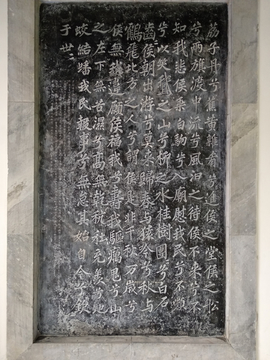 荔子丹兮蕉黄雜肴兮進侯之堂侯之船
兮兩旗渡中流兮風汨之待侯不來兮不
知我悲侯乘白駒兮入廟慰我民兮不嚬
兮以笑鵝之山兮柳之水桂樹團〻兮白石
齒〻侯朝出游兮莫來歸春與猨吟兮秋與
鶴飛北方之人兮謂侯是非千秋萬歲兮
侯無我違願侯福我兮壽我驅癘鬼兮山
之左下無苦濕兮高無乾秔稌充羨兮虵
蛟結蟠我民報事兮無怠其始自今兮欽
于世〻